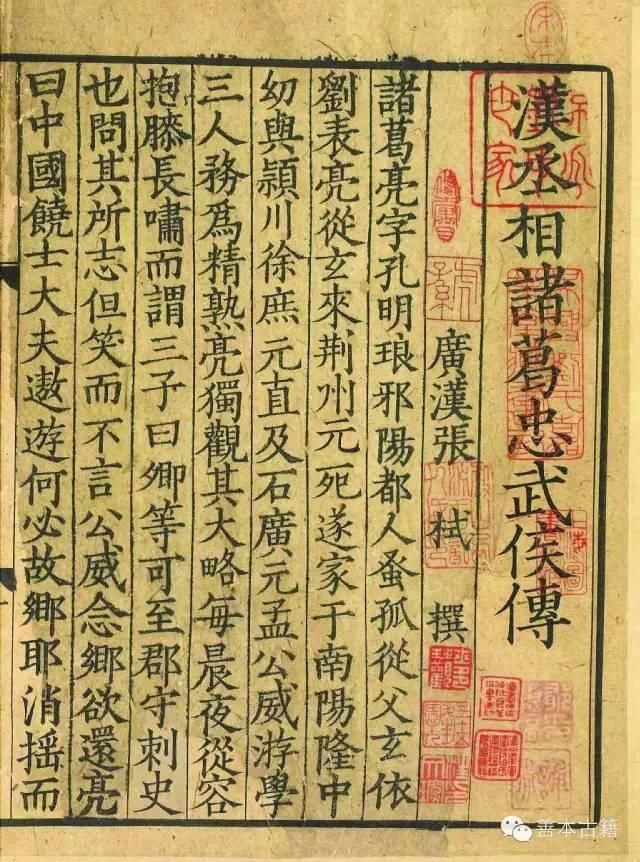 漢丞相諸葛忠武侯傳
廣漢張 栻 撰
諸葛亮字孔明琅邪陽都人蚤孤從父玄依
劉表亮從玄來荆州元死遂家于南陽隆中
幼與潁川徐庶元直及石廣元孟公威游學
三人務爲精熟亮獨觀其大略每晨夜從容
抱膝長嘯而謂三子曰卿等可至郡守刺史
也問其所志但笑而不言公威念鄉欲還亮
曰中國饒士大夫遨遊何必故鄉耶消摇而
善本古籍